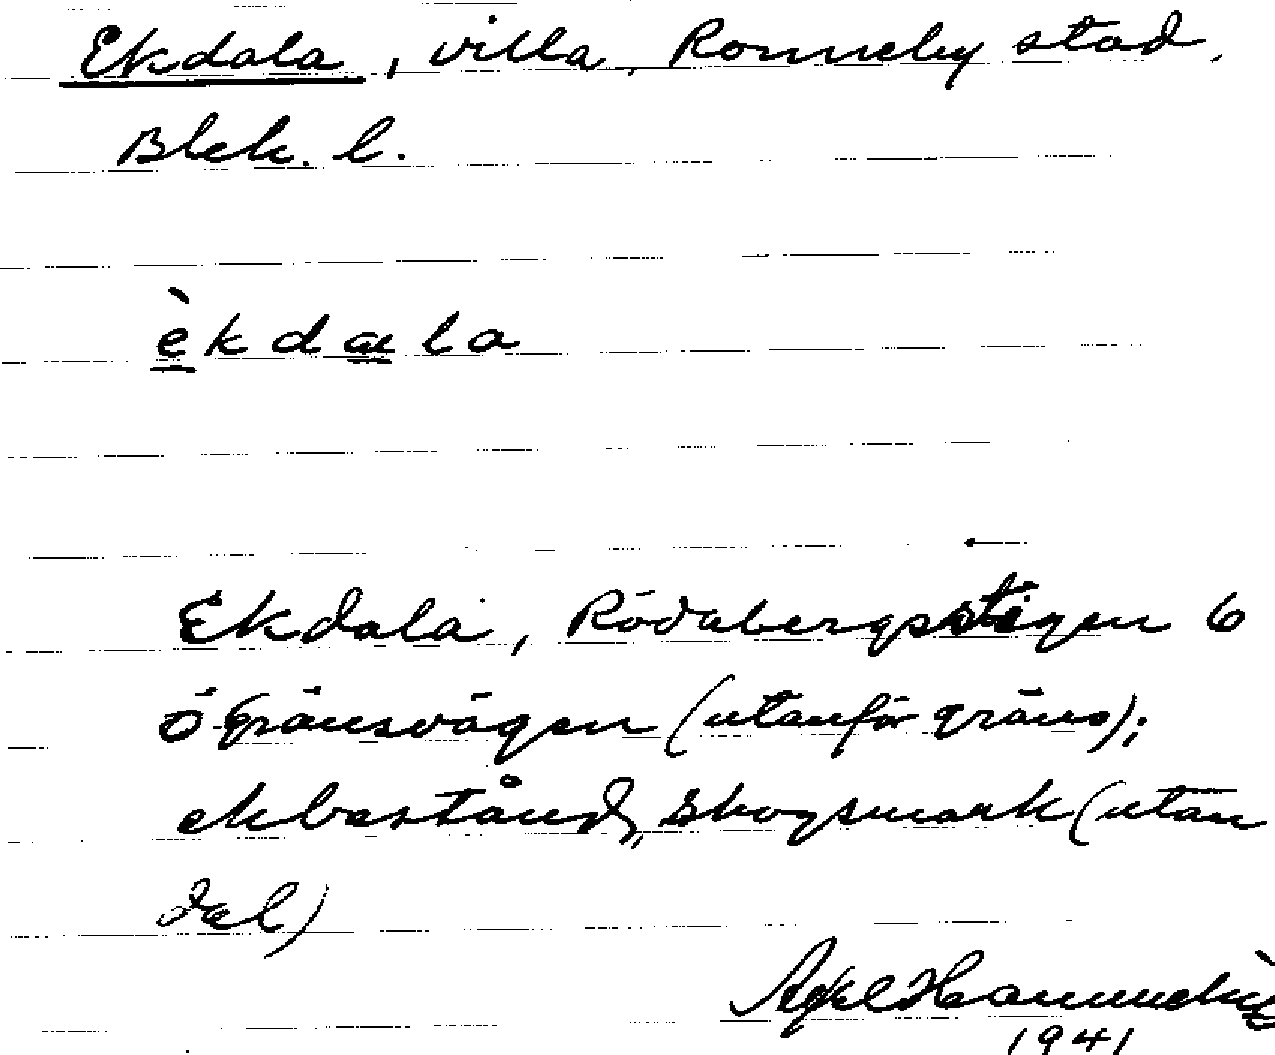 Ekdala, villa, Ronneby stad,
Blek. l.
èkdala
Ekdala, Rödabergsstigen 6
ö gränsvägen (utanför gräns);
ekbestånd, skogsmark (utan
dal)
Axel
1941